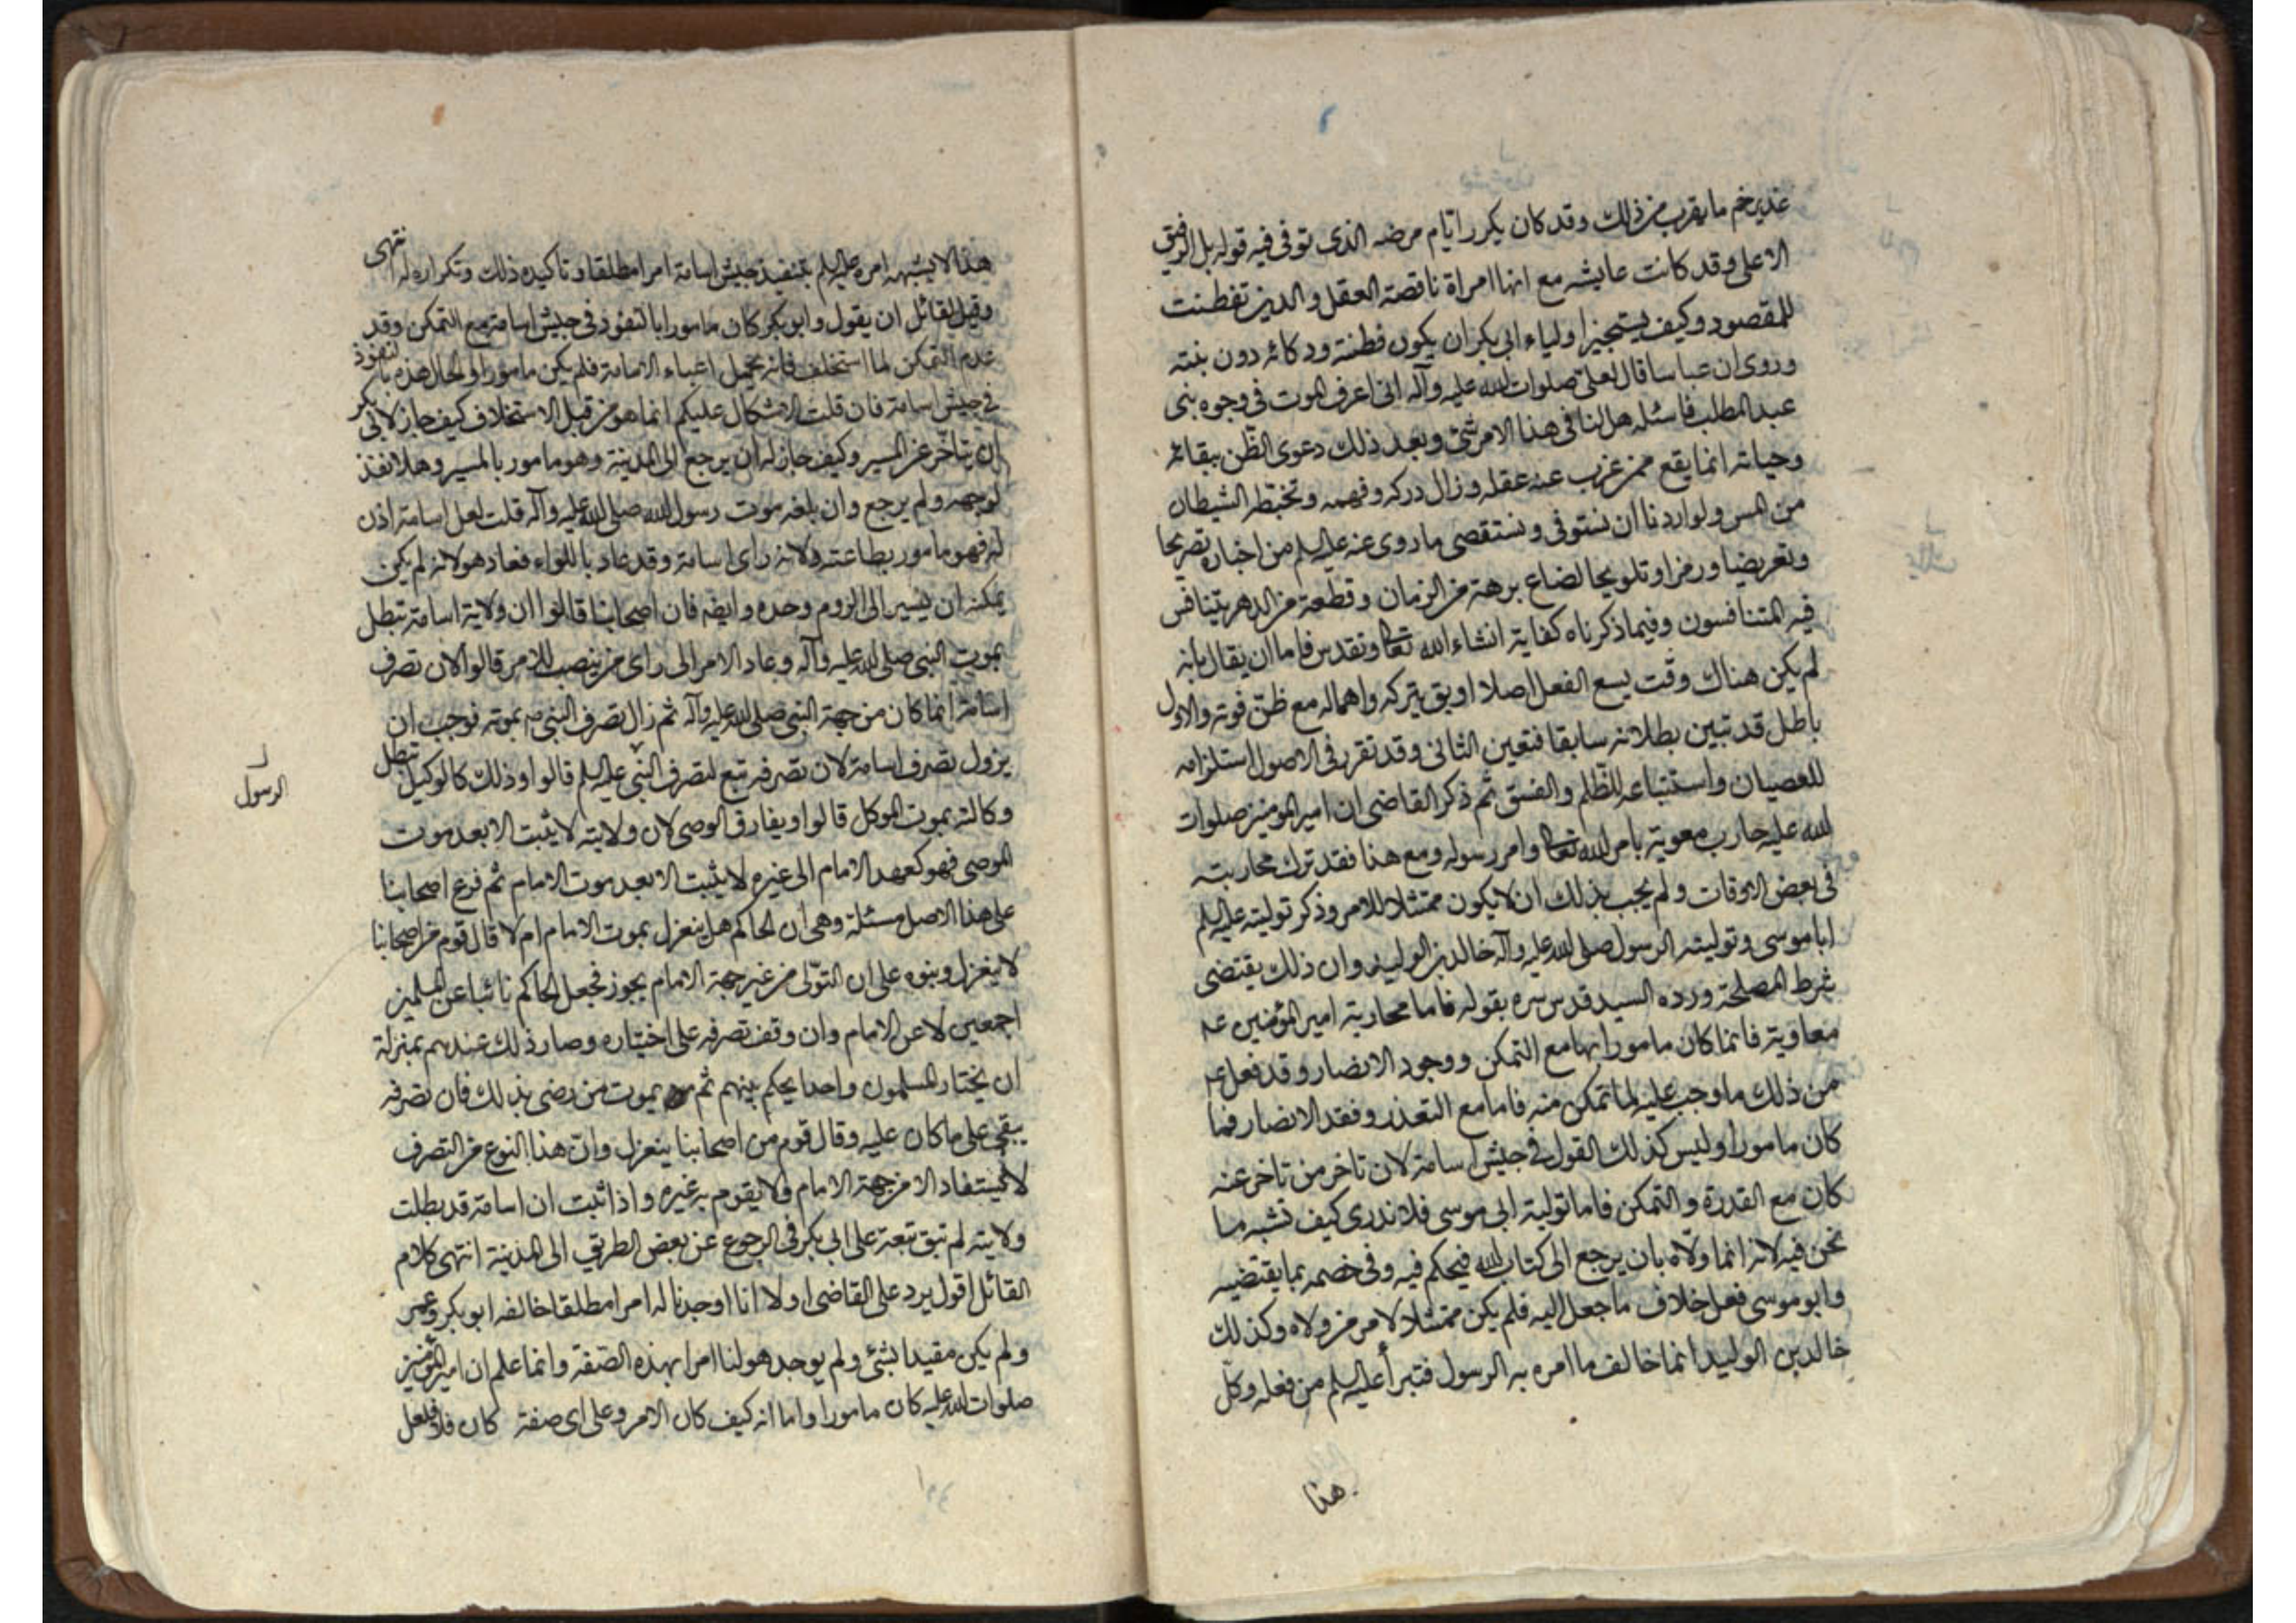 غدير خم ما يقرب من ذلك وقد كان يكرر ايام مرضه الذى توفى فيه قوله بل الرفيق
الاعلى وقد كانت عايشه مع انها امراة ناقصة العقل والدين تفطنت
للمقصود وكيف يستجيز اولياء ابى بكر ان يكون فطنته وذكائه دون بنته
وروى ان عباسا قال لعلى صلوات الله عليه وآله انى اعرف الموت فى وجوه بنى
عبد المطلب فاسئله هل لنا فى هذا الامر شئ وبعد ذلك دعوى الظن ببقائه
وحياته انما يقع ممن عزب عنه عقله وزال دركه وفهمه وتخبطه الشيطان
من المس ولو اردنا ان نستوفى ونستقصى ما روى عنه عليه السلم من اخباره تصريحا
وتعريضا ورمزا وتلويحا لضاع برهة من الزمان وقطعة من الدهر يتنافس
فيه المتنافسون وفيما ذكرناه كفاية انشاء الله تعا وتقدس فاما ان يقال بانه
لم يكن هناك وقت يسع الفعل اصلا او يق بتركه واهماله مع ظن فوته والاول
باطل قد تبين بطلانه سابقا فتعين الثانى وقد تقرر فى الاصول استلزامه
للعصيان واستتباعه للظلم والفسق ثم ذكر القاضى ان امير المومنين صلوات
الله عليه حارب معوية بامر الله تعا وامر رسوله ومع هذا فقد ترك محاربته
فى بعض الاوقات ولم يجب بذلك ان لا يكون ممتثلا للامر وذكر توليته عليه السلم
ابا موسى وتولية الرسول صلى الله عليه وآله خالد بن الوليد وان ذلك يقتضى
شرط المصلحة ورده السيد قدس سره بقوله فاما محاربة امير المؤمنين عم
معاوية فانما كان مامورا بها مع التمكن ووجود الانصار وقد فعل عم
من ذلك ما وجب عليه لما تمكن منه فاما مع التعذر وفقد الانصار فما
كان مامورا وليس كذلك القول فى جيش اسامة لان تاخر من تاخر عنه
كان مع القدرة والتمكن فاما تولية ابى موسى فلا ندرى كيف تشبه ما
نحن فيه لانه انما ولاه بان يرجع الى كتاب الله فيحكم فيه وفى خصمه بما يقتضيه
وابو موسى فعل خلاف ما جعل اليه فلم يكن ممتثلا لامر من ولاه وكذلك
خالد بن الوليد انما خالف ما امره به الرسول فتبرأ عليه السلم من فعله وكل
هذا
هذا لا يشبه امره عليه السلم بتنفيذ جيش اسامة امرا مطلقا وتاكيده ذلك وتكراره له انتهى
وقيل لقائل ان يقول وابو بكر كان مامورا بالنفوذ فى جيش اسامة مع التمكن وقد
عدم التمكن لما استخلف فانه تحمل اعباء الامامة فلم يكن مامورا والحال هذه بالنفوذ
فى جيش اسامة فان قلت الاشكال عليكم انما هو من قبل الاستخلاف كيف جاز لابى بكر
ان يتاخر عن المسير وكيف جاز له ان يرجع الى المدينة وهو مامور بالمسير وهلا نفذ
لوجهه ولم يرجع وان بلغه موت رسول الله صلى الله عليه وآله قلت لعل اسامة اذن
له فهو مامور بطاعته ولانه راى اسامة وقد عاد باللواء فعاد هو لانه لم يكن
يمكنه ان يسير الى الروم وحده وايضه فان اصحابنا قالوا ان ولاية اسامة تبطل
بموت النبى صلى الله عليه وآله وعاد الامر الى راى من ينصب للامر قالوا لان تصرف
اسامة انما كان من جهة النبى صلى الله عليه وآله ثم زال تصرف النبى ص بموته فوجب ان
يزول تصرف اسامة لان تصرفه تبع لتصرف النبى عليه السلم قالوا وذلك كالوكيل تبطل
الرسول
وكالته بموت الموكل قالوا ويفارق الوصى لان ولايته لا يثبت الا بعد موت
الموصى فهو كعهد الامام الى غيره لا يثبت الا بعد موت الامام ثم فرع اصحابنا
على هذا الاصل مسئلة وهى ان الحاكم هل ينعزل بموت الامام ام لا قال قوم من اصحابنا
لا ينعزل وبنوه على ان التولى من غير جهة الامام يجوز فجعل الحاكم نائبا عن المسلمين
اجمعين لا عن الامام وان وقف تصرفه على اختياره وصار ذلك عندهم بمنزلة
ان يختار المسلمون واحدا يحكم بينهم ثم يموت من رضى بذلك فان تصرفه
يبقى على ما كان عليه وقال قوم من اصحابنا ينعزل وان هذا النوع من التصرف
لا يستفاد الا من جهة الامام ولا يقوم به غيره واذا ثبت ان اسامة قد بطلت
ولايته لم تبق تبعة على ابى بكر فى الرجوع عن بعض الطريق الى المدينة انتهى كلام
القائل اقول يرد على القاضى اولا انا اوجدنا له امرا مطلقا خالفه ابو بكر وعمر
ولم يكن مقيدا بشئ ولم يوجد هو لنا امرا بهذه الصفة وانما علم ان امير المؤمنين
صلوات الله عليه كان مامورا واما انه كيف كان الامر وعلى اى صفة كان فلا فلعل